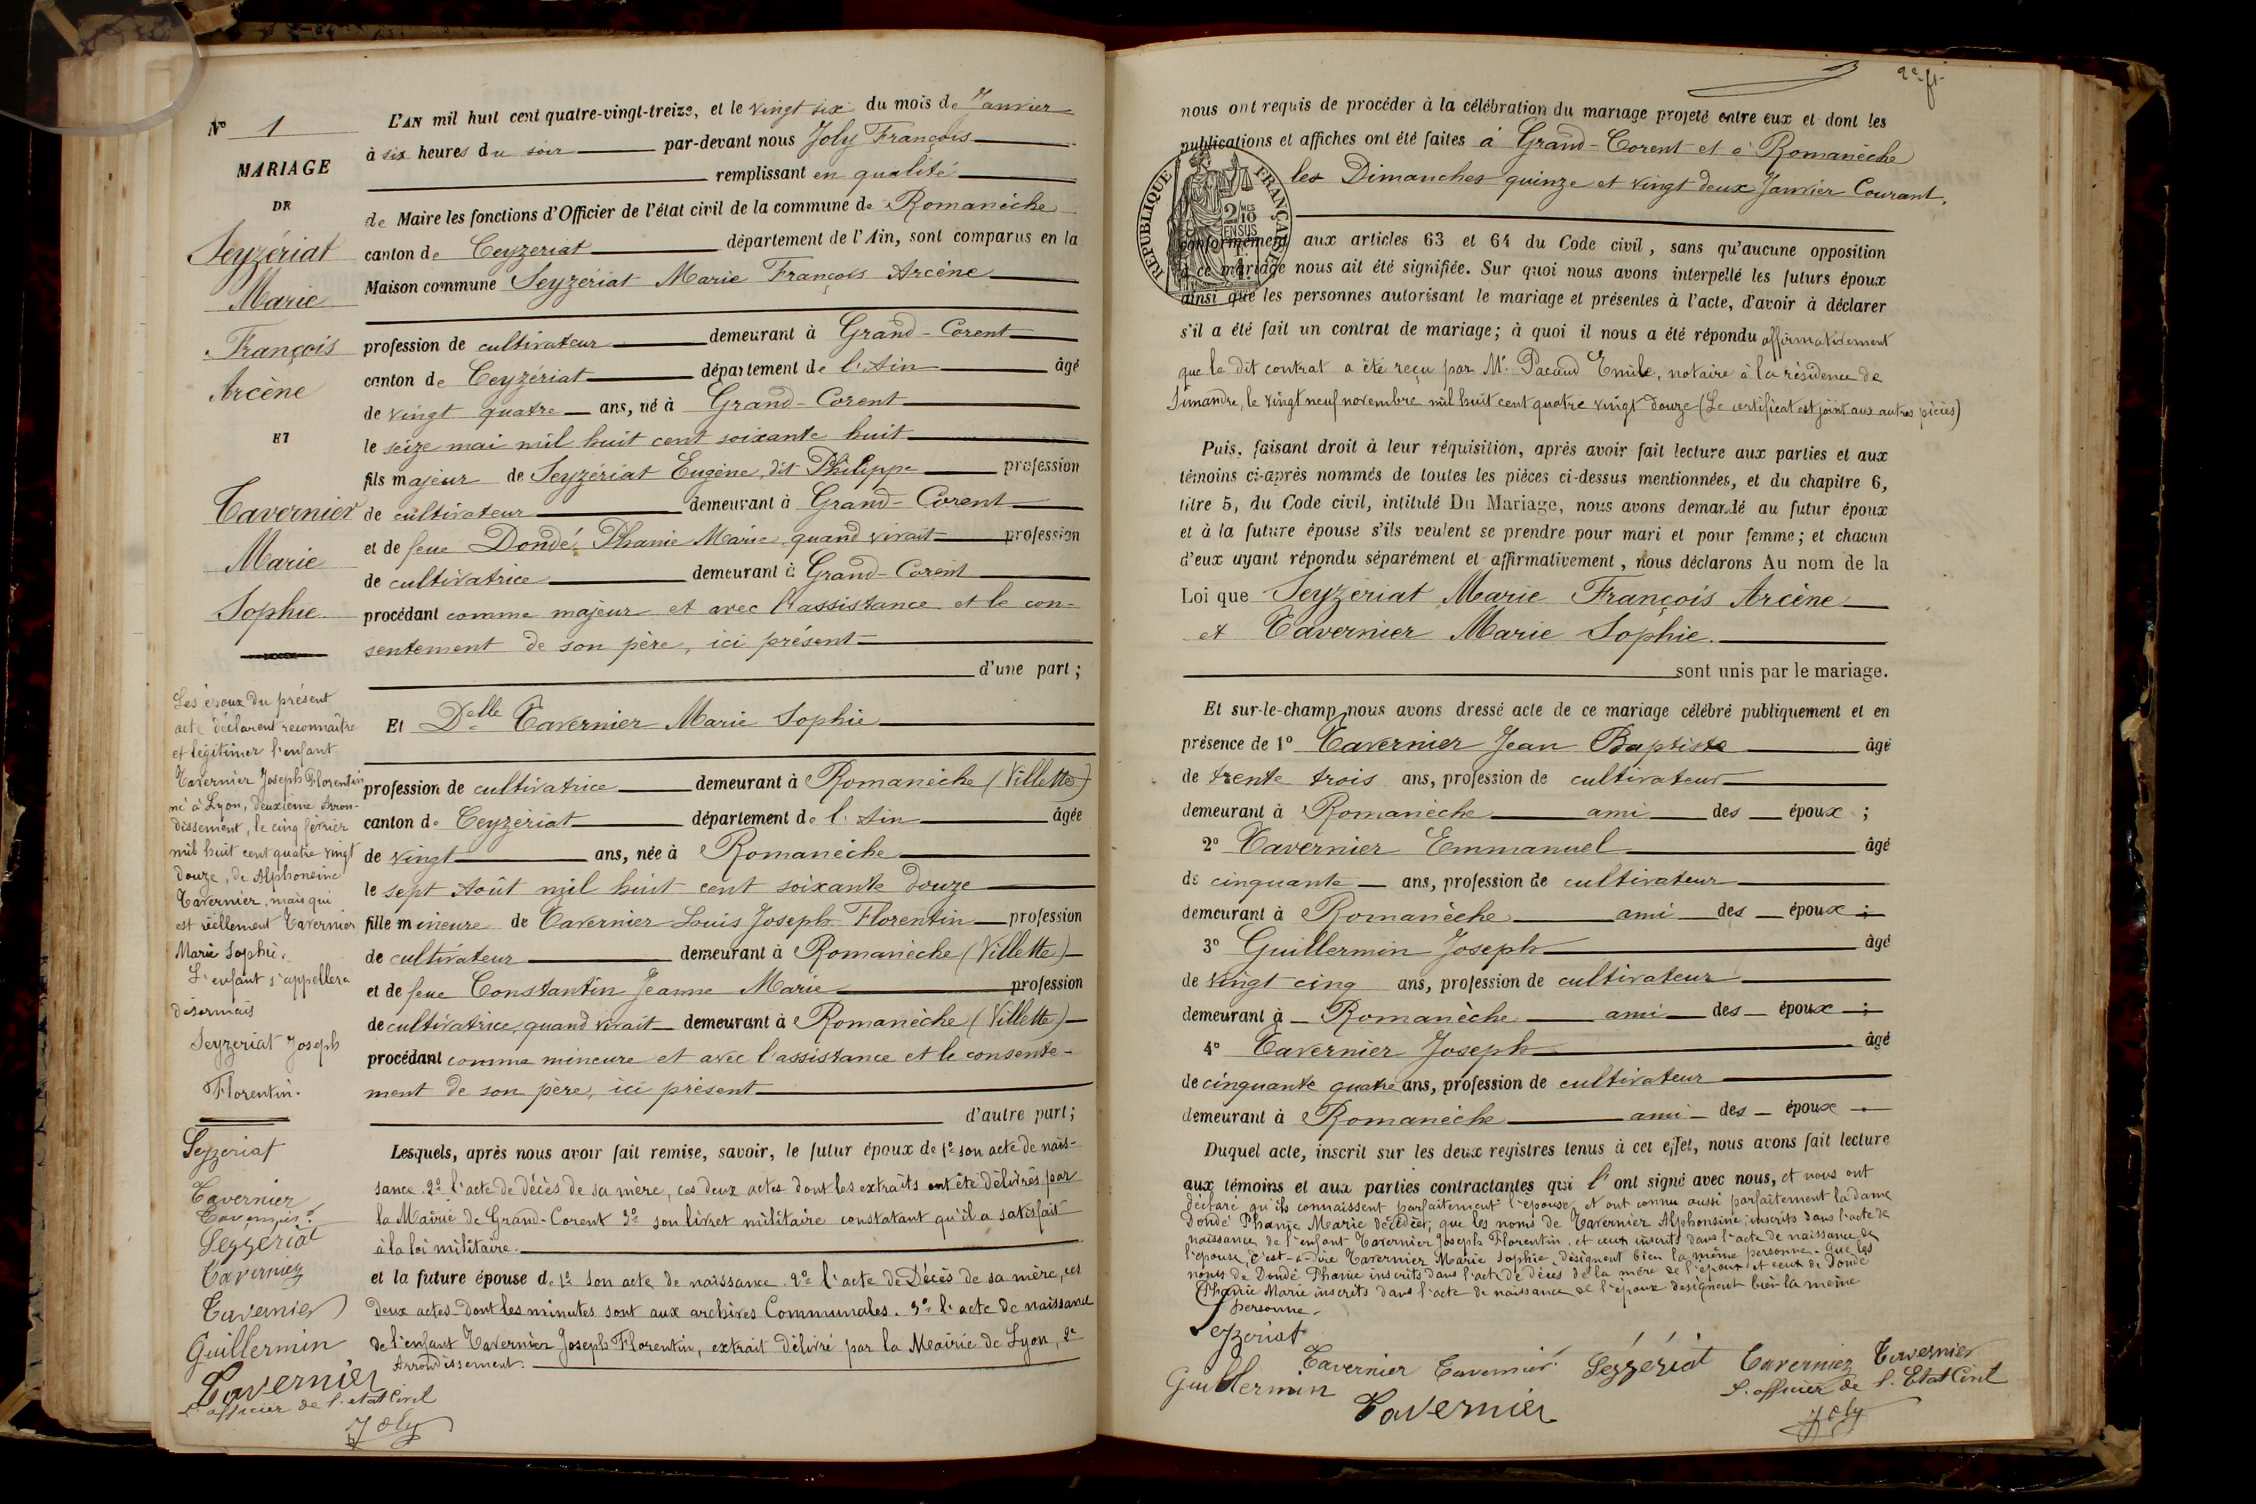 Nº 1
MARIAGE
DE
Seyzériat
Marie
François
Arcène
ET
Tavernier
Marie
Sophie
Les époux du présent
acte déclarent reconnaître
et légitimer l'enfant
Tavernier Joseph Florentin
né à Lyon, deuxième Arron-
dissement, le cinq février
mil huit cent quatre vingt
douze, de Alphonsine
Tavernier, mais qui
est réellement Tavernier
Marie Sophie.
L'enfant s'appellera
désormais
Seyzériat Joseph
Florentin.
Seyzeriat
Tavernier
Tavernier
Sezzériat
Tavernier
Tavernier
Guillermin
Tavernier
L'officier de l'état Civil
Joly
L'AN mil huit cent quatre-vingt-treize, et le vingt six du mois de Janvier
à six heures du soir par-devant nous Joly François
remplissant en qualité
de Maire les fonctions d'Officier de l'état civil de la commune de Romanèche
canton de Ceyzériat département de l'Ain, sont comparus en la
Maison commune Seyzériat Marie François Arcène
profession de cultivateur demeurant à Grand-Corent
canton de Ceyzériat département de l'Ain âgé
de vingt quatre ans, né à Grand-Corent
le seize mai mil huit cent soixante huit
fils majeur de Seyzériat Eugène, dit Philippe profession
de cultivateur demeurant à Grand-Corent
et de feue Dondé Phanie Marie, quand vivait profession
de cultivatrice demeurant à Grand-Corent
procédant comme majeur et avec l'assistance et le con-
sentement de son père, ici présent
d'une part ;
Et Delle Tavernier Marie Sophie
profession de cultivatrice demeurant à Romanèche (Villette)
canton de Ceyzériat département de l'Ain âgée
de vingt ans, née à Romanèche
le sept Août mil huit cent soixante douze
fille mineure de Tavernier Louis Joseph Florentin profession
de cultivateur demeurant à Romanèche (Villette)
et de feue Constantin Jeanne Marie profession
de cultivatrice, quand vivait demeurant à Romanèche (Villette)
procédant comme mineure et avec l'assistance et le consente-
ment de son père, ici présent
d'autre part ;
Lesquels, après nous avoir fait remise, savoir, le futur époux de 1º son acte de nais-
sance. 2º l'acte de décès de sa mère, ces deux actes dont les extraits ont été délivrés par
la Mairie de Grand-Corent 3º son livret militaire constatant qu'il a satisfait
à la loi militaire.
et la future épouse de 1º son acte de naissance. 2º l'acte de Décès de sa mère, ces
deux actes dont les minutes sont aux archives Communales. 3º l'acte de naissance
de l'enfant Tavernier Joseph Florentin, extrait délivré par la Mairie de Lyon, 2e
Arrondissement.
2e ft
nous ont requis de procéder à la célébration du mariage projeté entre eux et dont les
publications et affiches ont été faites à Grand-Corent et à Romanèche
les Dimanches quinze et vingt deux Janvier Courant.
RÉPUBLIQUE FRANÇAISE
conformément aux articles 63 et 64 du Code civil, sans qu'aucune opposition
à ce mariage nous ait été signifiée. Sur quoi nous avons interpellé les futurs époux
ainsi que les personnes autorisant le mariage et présentes à l'acte, d'avoir à déclarer
s'il a été fait un contrat de mariage; à quoi il nous a été répondu affirmativement
que le dit contrat a été reçu par Me Pacaud Emile, notaire à la résidence de
Simandre, le vingt neuf novembre mil huit cent quatre vingt douze (Le certificat est joint aux autres pièces)
Puis, faisant droit à leur réquisition, après avoir fait lecture aux parties et aux
témoins ci-après nommés de toutes les pièces ci-dessus mentionnées, et du chapitre 6,
titre 5, du Code civil, intitulé Du Mariage, nous avons demandé au futur époux
et à la future épouse s'ils veulent se prendre pour mari et pour femme; et chacun
d'eux ayant répondu séparément et affirmativement, nous déclarons Au nom de la
Loi que Seyzériat Marie François Arcène
et Tavernier Marie Sophie.
sont unis par le mariage.
Et sur-le-champ nous avons dressé acte de ce mariage célébré publiquement et en
présence de 1º Tavernier Jean Baptiste âgé
de trente trois ans, profession de cultivateur
demeurant à Romanèche ami des époux ;
2º Tavernier Emmanuel âgé
de cinquante ans, profession de cultivateur
demeurant à Romanèche ami des époux ;
3º Guillermin Joseph âgé
de vingt cinq ans, profession de cultivateur
demeurant à Romanèche ami des époux ;
4º Tavernier Joseph âgé
de cinquante quatre ans, profession de cultivateur
demeurant à Romanèche ami des époux .
Duquel acte, inscrit sur les deux registres tenus à cet effet, nous avons fait lecture
aux témoins et aux parties contractantes qui l'ont signé avec nous, et nous ont
déclaré qu'ils connaissent parfaitement l'épouse, et ont connu aussi parfaitement la dame
Dondé Phanie Marie décédée; que les noms de Tavernier Alphonsine, inscrits dans l'acte de
naissance de l'enfant Tavernier Joseph Florentin, et ceux inscrits dans l'acte de naissance de
l'épouse, c'est-à-dire Tavernier Marie Sophie, désignent bien la même personne. Que les
noms de Dondé Phanie inscrits dans l'acte de décès de la mère de l'époux et ceux de Dondé
Phanie Marie inscrits dans l'acte de naissance de l'époux désignent bien la même
personne.
Seyzeriat
Tavernier Tavernier Sézzériat Tavernier Tavernier
Guillermin Tavernier L'officier de l'Etat Civil
Joly